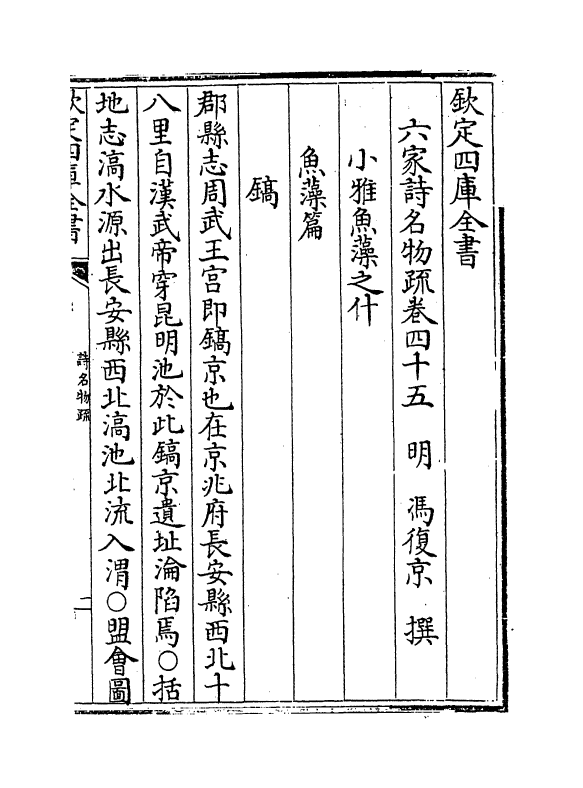 欽定四庫全書
六家詩名物疏卷四十五　明　馮復京　撰
小雅魚藻之什
魚藻篇
鎬
郡縣志周武王宫即鎬京也在京兆府長安縣西北十
八里自漢武帝穿昆明池於此鎬京遺址淪陷焉○括
地志滈水源出長安縣西北滈池北流入渭○盟㑹圖
欽定四庫全書
詩名物疏